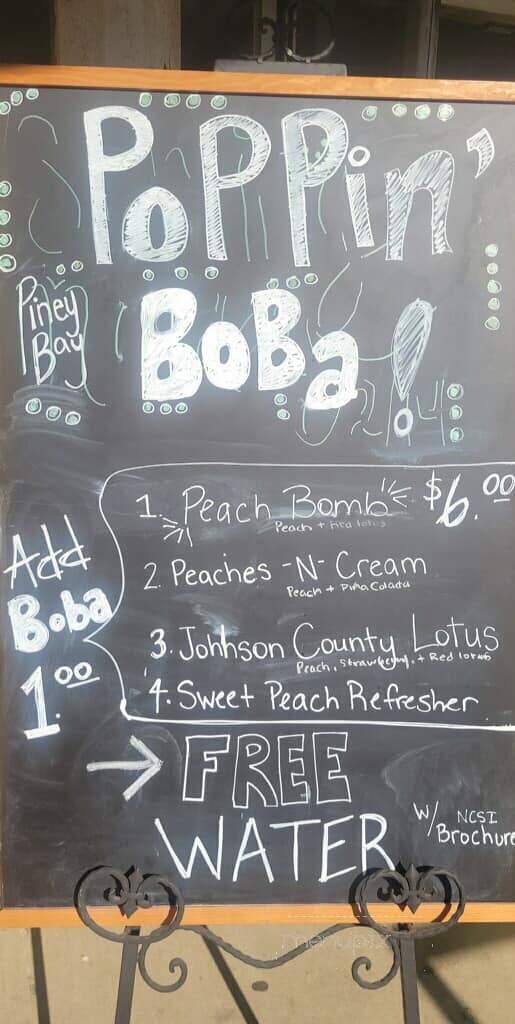 PoPPin'
BoBa!
Piney
Bay
Add
Boba
1.00
1. Peach Bomb $6.00
Peach + Red lotus
2. Peaches -N- Cream
Peach + Piña Colada
3. Johnson County Lotus
Peach, Strawberry, + Red lotus
4. Sweet Peach Refresher
→ FREE
WATER
W/ NCSI
Brochure
menupix